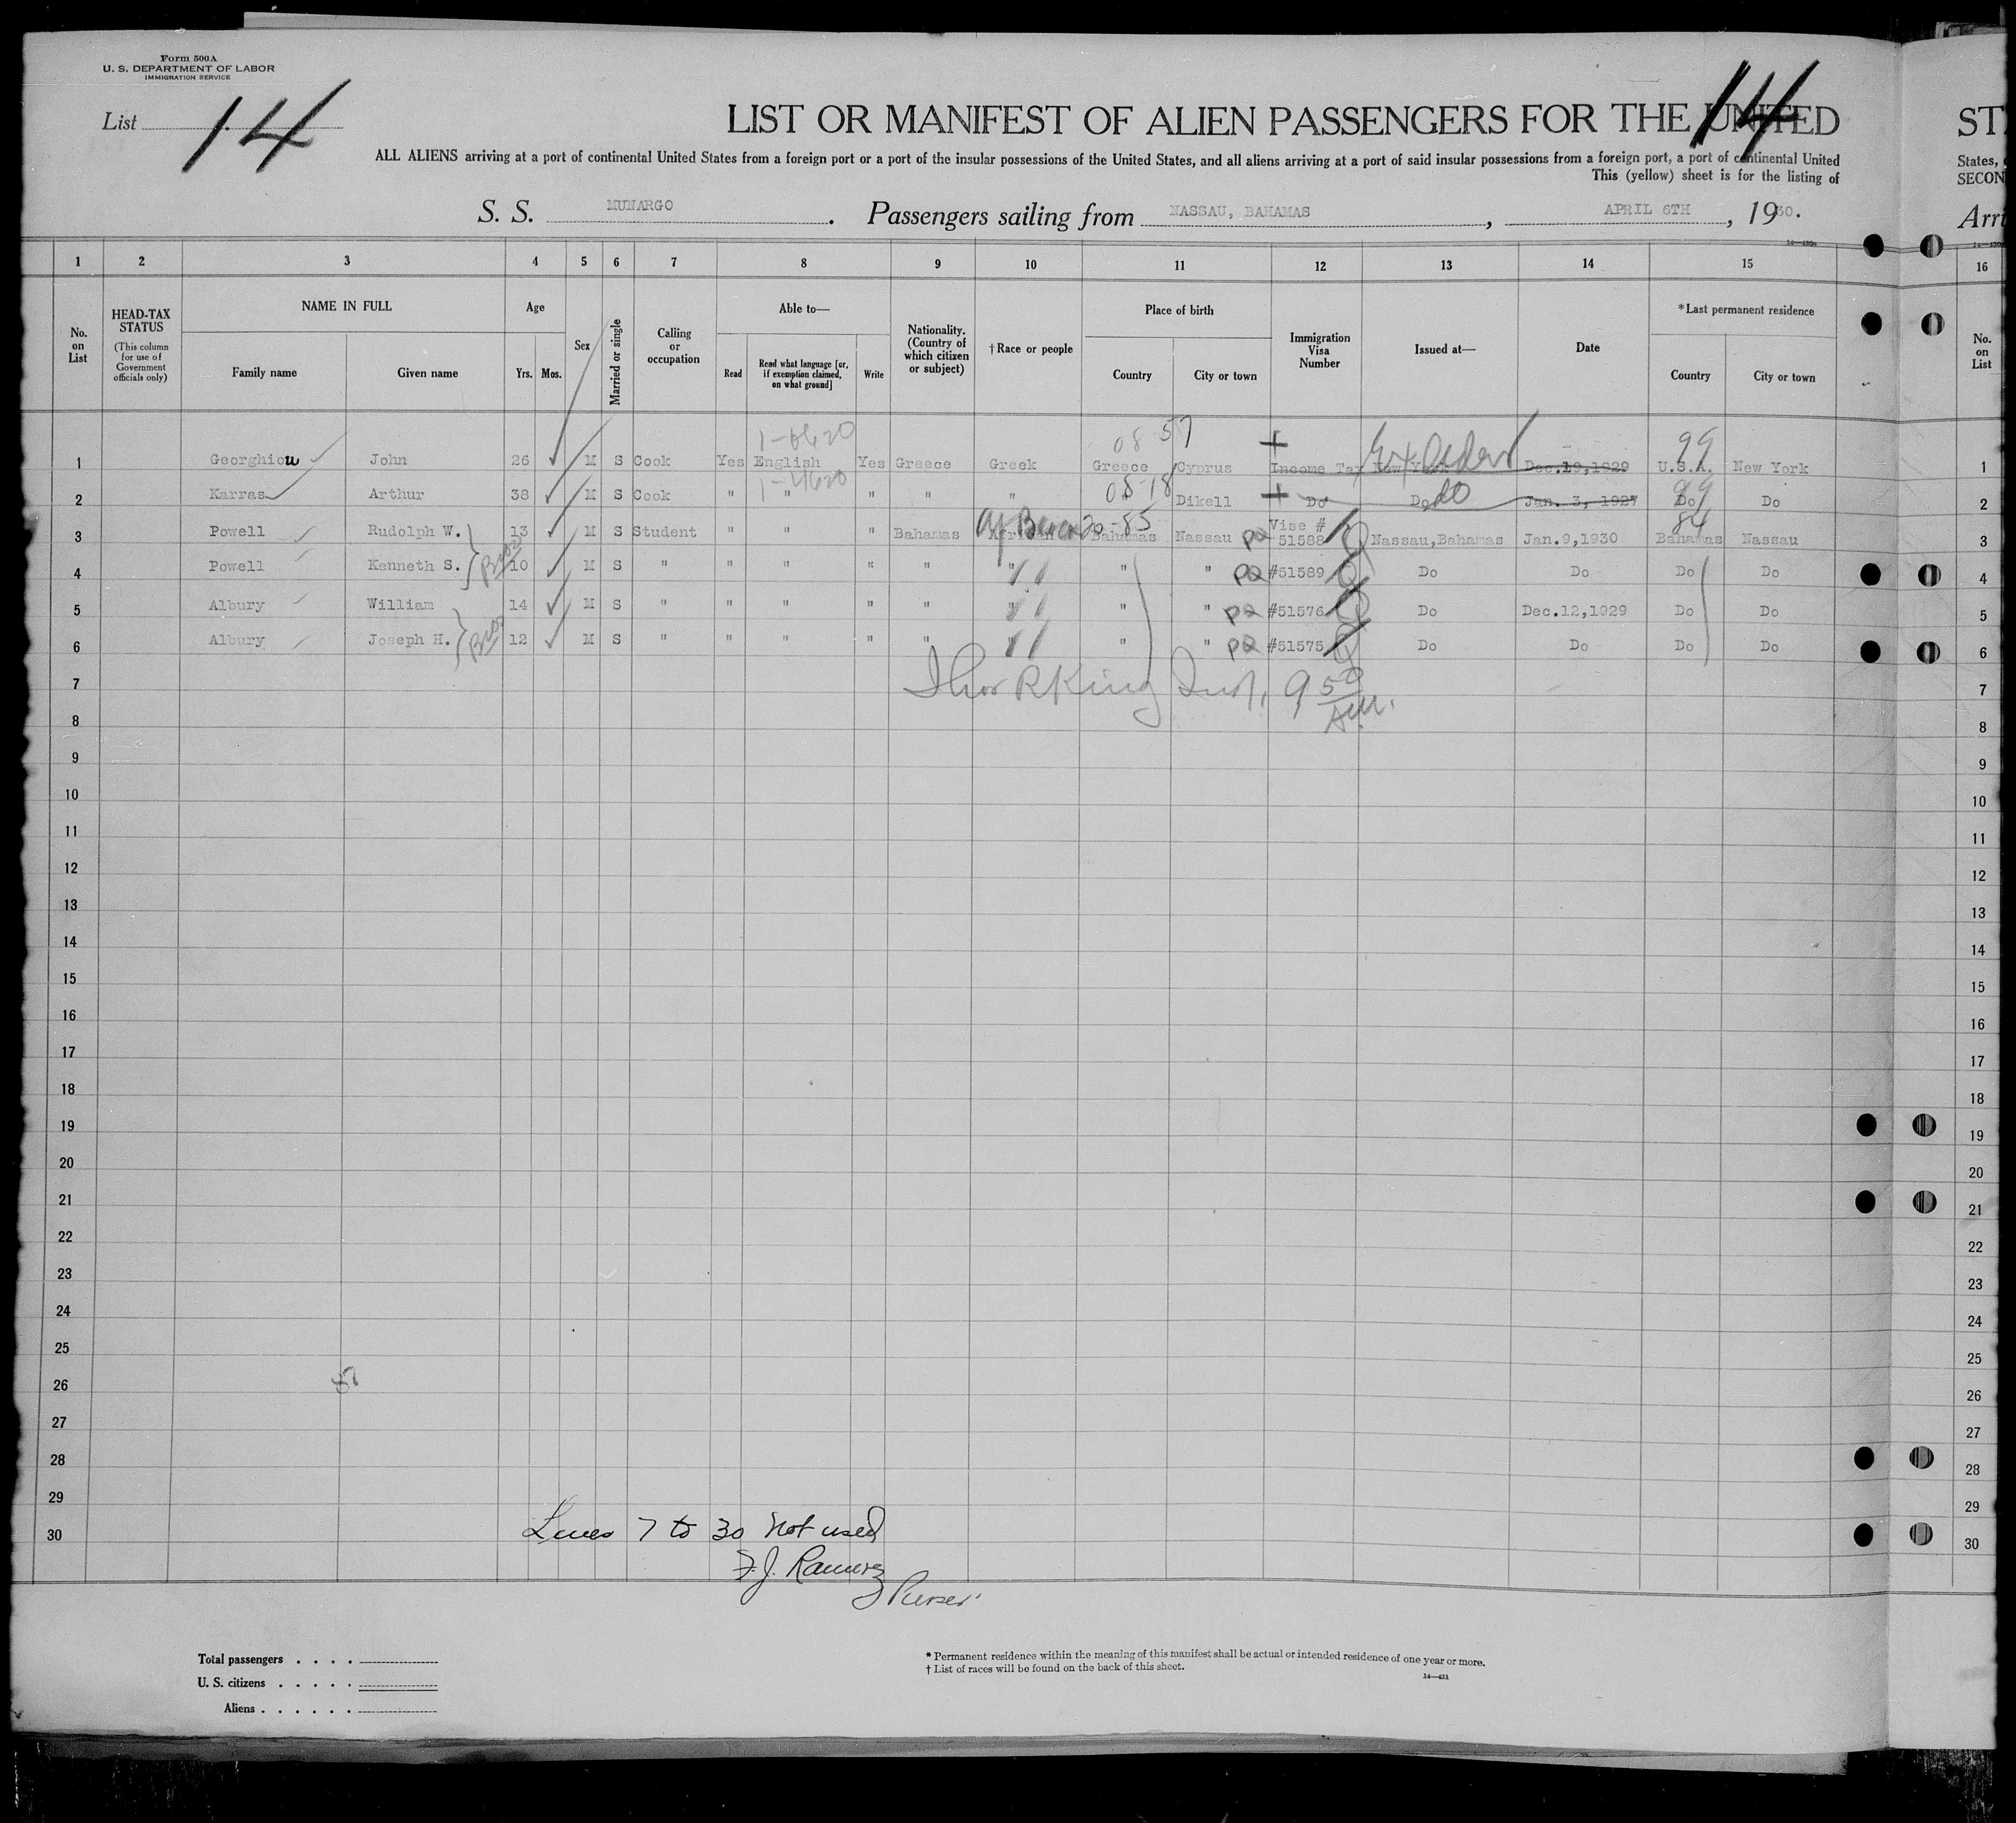 Form 500A
U. S. DEPARTMENT OF LABOR
IMMIGRATION SERVICE
List 14
14
LIST OR MANIFEST OF ALIEN PASSENGERS FOR THE UNITED
ST
ALL ALIENS arriving at a port of continental United States from a foreign port or a port of the insular possessions of the United States, and all aliens arriving at a port of said insular possessions from a foreign port, a port of continental United
States,
This (yellow) sheet is for the listing of
SECON
S. S. MUNARGO. Passengers sailing from NASSAU, BAHAMAS, APRIL 6TH, 1930.
Arri
1 2 3 4 5 6 7 8 9 10 11 12 13 14 15 16
No. on List
HEAD-TAX STATUS (This column for use of Government officials only)
NAME IN FULL
Family name Given name
Age
Yrs. Mos.
Sex
Married or single
Calling or occupation
Able to—
Read Read what language [or, if exemption claimed, on what ground] Write
Nationality. (Country of which citizen or subject)
† Race or people
Place of birth
Country City or town
Immigration Visa Number
Issued at—
Date
* Last permanent residence
Country City or town
No. on List
08 57 99
1 Georghiou John 26 M S Cook Yes English Yes Greece Greek Greece Cyprus Income Tax New York Dec.19,1929 U.S.A. New York 1
08-18 99
2 Karras Arthur 38 M S Cook " " " " " Dikell Do Do do Jan. 3, 1927 Do Do 2
20-85 84
3 Powell Rudolph W. 13 M S Student " " " Bahamas African Bahamas Nassau PQ Vise # 51588 Nassau,Bahamas Jan.9,1930 Bahamas Nassau 3
4 Powell Kenneth S. Bros 10 M S " " " " " " " " PQ #51589 Do Do Do Do 4
5 Albury William 14 M S " " " " " " " " PQ #51576 Do Dec.12,1929 Do Do 5
6 Albury Joseph H. Bros 12 M S " " " " " " " " PQ #51575 Do Do Do Do 6
7 R King 9 50 7
8 AM. 8
9 9
10 10
11 11
12 12
13 13
14 14
15 15
16 16
17 17
18 18
19 19
20 20
21 21
22 22
23 23
24 24
25 25
26 26
27 27
28 28
29 29
30 Lines 7 to 30 not used 30
F. J. Ramirez
Purser
Total passengers . . . .
U. S. citizens . . . . .
Aliens . . . . . .
* Permanent residence within the meaning of this manifest shall be actual or intended residence of one year or more.
† List of races will be found on the back of this sheet.
14—431